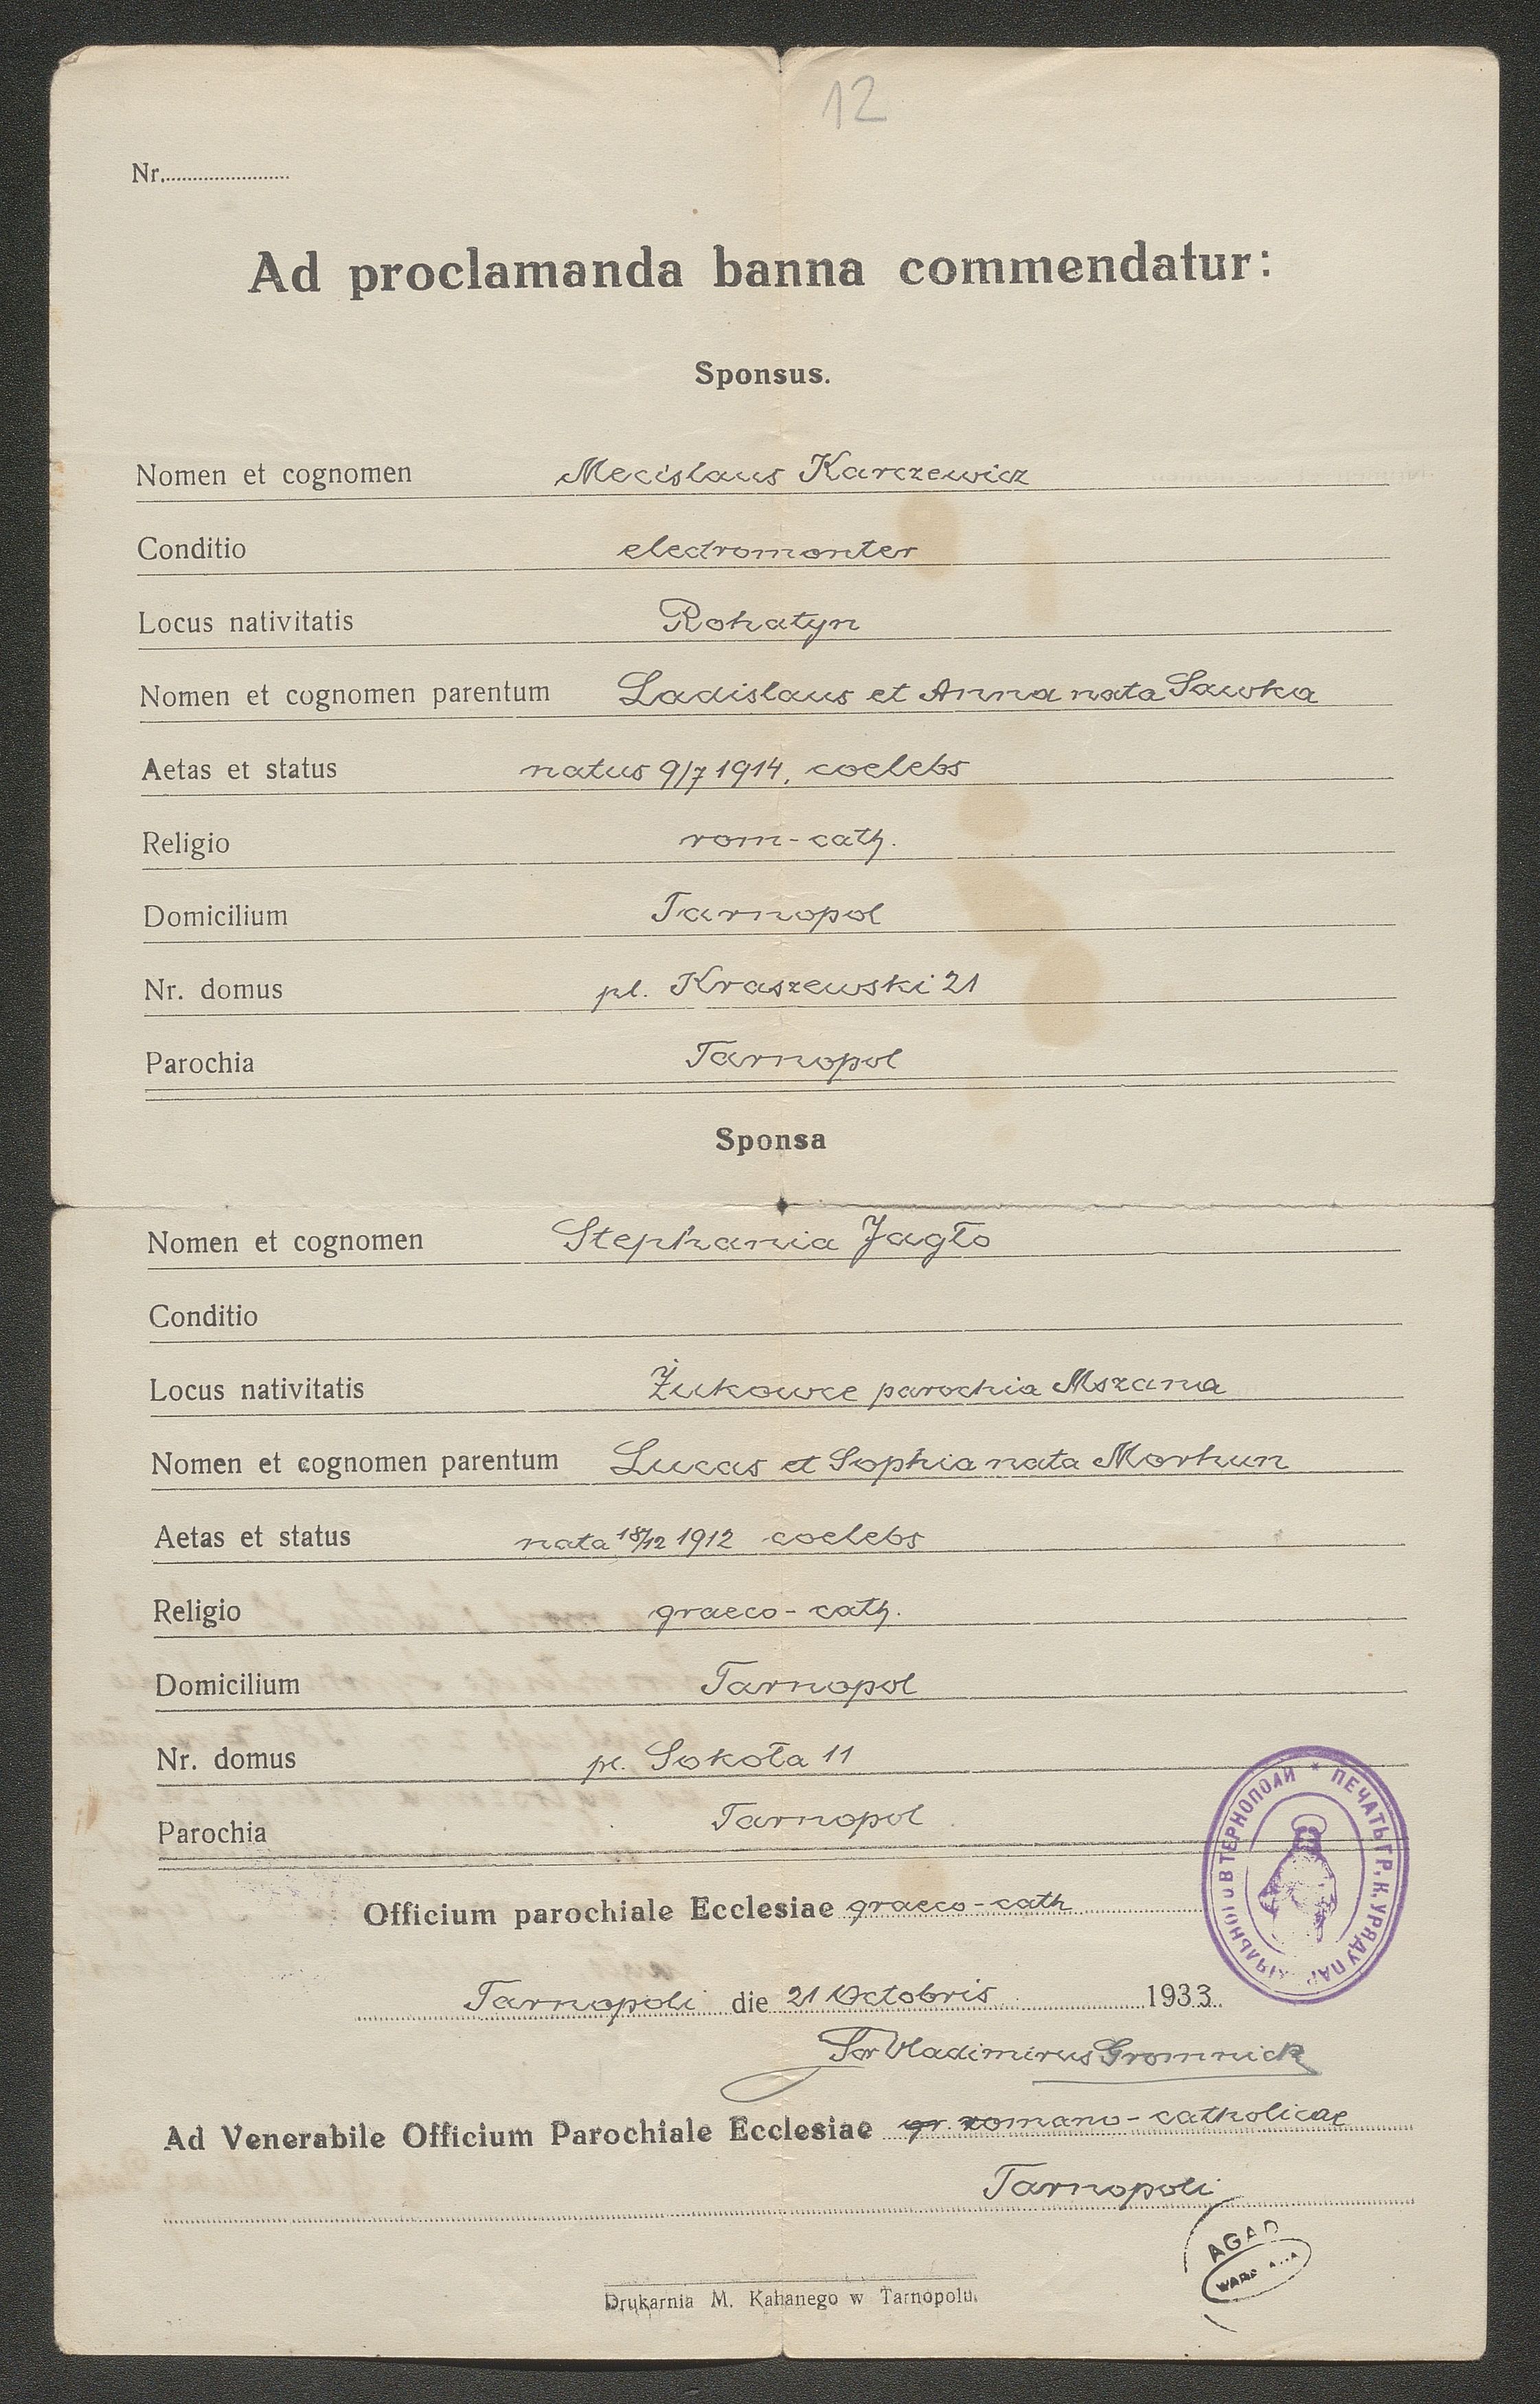 12
Nr.
Ad proclamanda banna commendatur:
Sponsus.
Nomen et cognomen Mecislaus Karczewicz
Conditio electromonter
Locus nativitatis Rohatyn
Nomen et cognomen parentum Ladislaus et Anna nata Sawka
Aetas et status natus 9/7 1914, coelebs
Religio rom-cath.
Domicilium Tarnopol
Nr. domus pl. Kraszewski 21
Parochia Tarnopol
Sponsa
Nomen et cognomen Stephania Jagło
Conditio
Locus nativitatis Żukowce parochia Mszana
Nomen et cognomen parentum Lucas et Sophia nata Morhun
Aetas et status nata 18/12 1912 coelebs
Religio graeco-cath.
Domicilium Tarnopol
Nr. domus pl. Sokoła 11
Parochia Tarnopol
ПЕЧАТЬ ГР. К. УРЯДУ В ТЕРНОПОЛИ *
Officium parochiale Ecclesiae graeco-cath
Tarnopoli die 21 Octobris 1933.
Vladimirus Gromnick
Ad Venerabile Officium Parochiale Ecclesiae gr. romano-catholicae
Tarnopoli
AGAD
Drukarnia M. Kahanego w Tarnopolu.